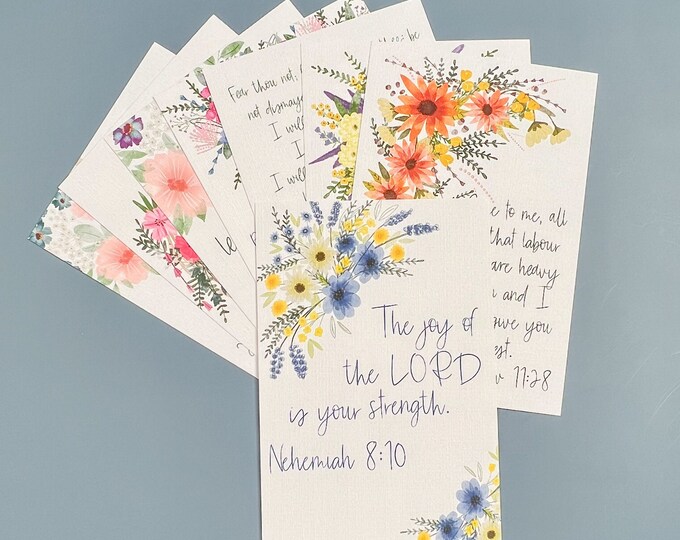 Fear thou not;
not dismay
I will
I
I wi
be
Le
e to me, all
that labour
are heavy
and I
ive you
st.
11:28
The joy of
the LORD
is your strength.
Nehemiah 8:10